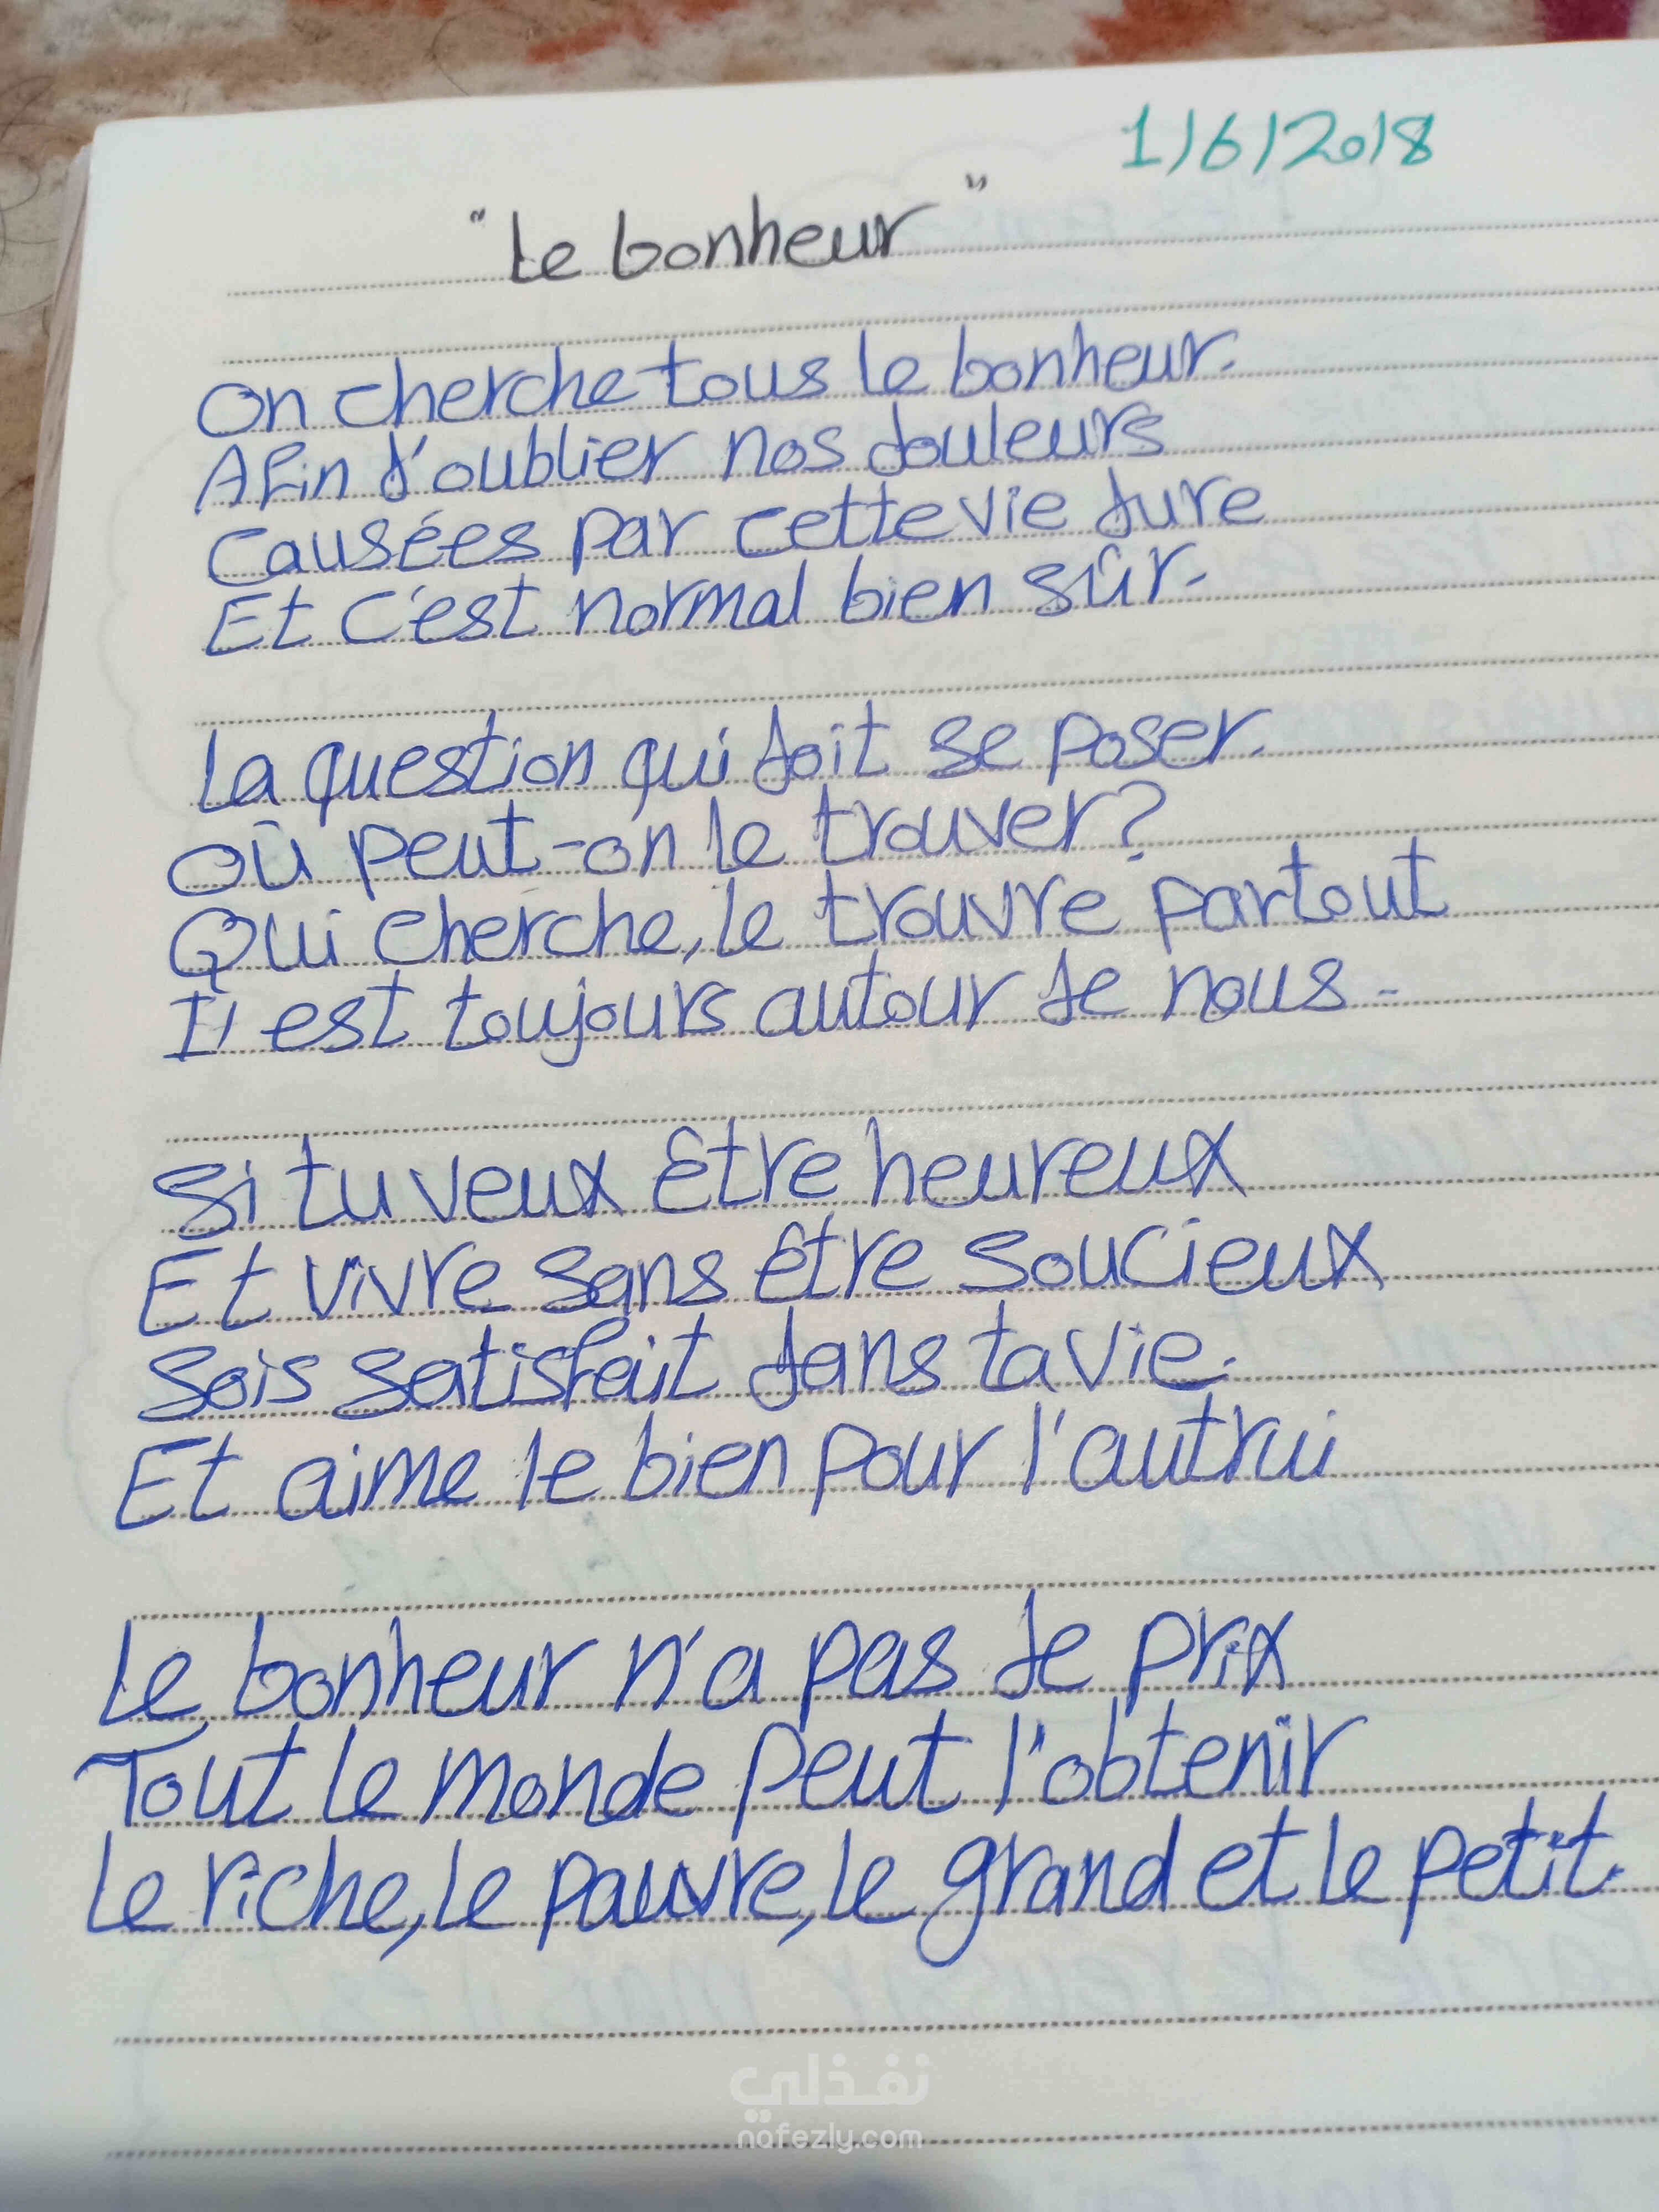 1/6/2018
"Le bonheur"
On cherche tous le bonheur.
Afin d'oublier nos douleurs
Causées par cette vie dure
Et c'est normal bien sûr.
La question qui doit se poser.
Où peut-on le trouver?
Qui cherche, le trouvre partout
Il est toujours autour de nous.
Si tu veux être heureux
Et vivre sans être soucieux
Sois satisfait dans ta vie.
Et aime le bien pour l'autrui
Le bonheur n'a pas de prix
Tout le monde peut l'obtenir
Le riche, le pauvre, le grand et le petit.
نفذلي
nafezly.com